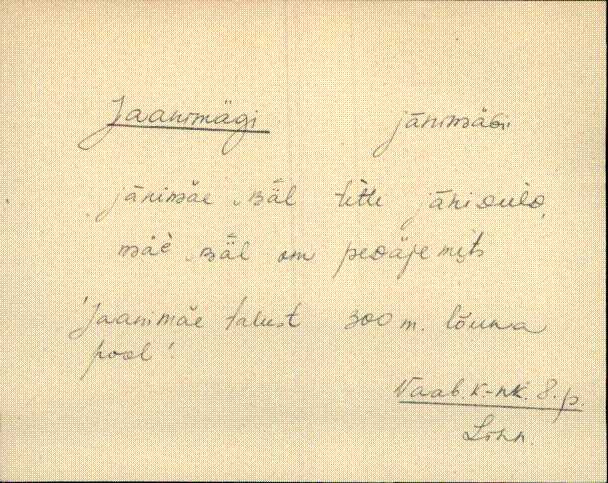 Jaanimägi jānimäGi
jānimäe päl tetti jānioulo,
mäe päl om pedäje mets
'Jaanimäe talust 300 m. lõuna
pool'.
Vaab. k-nk. 8. p.